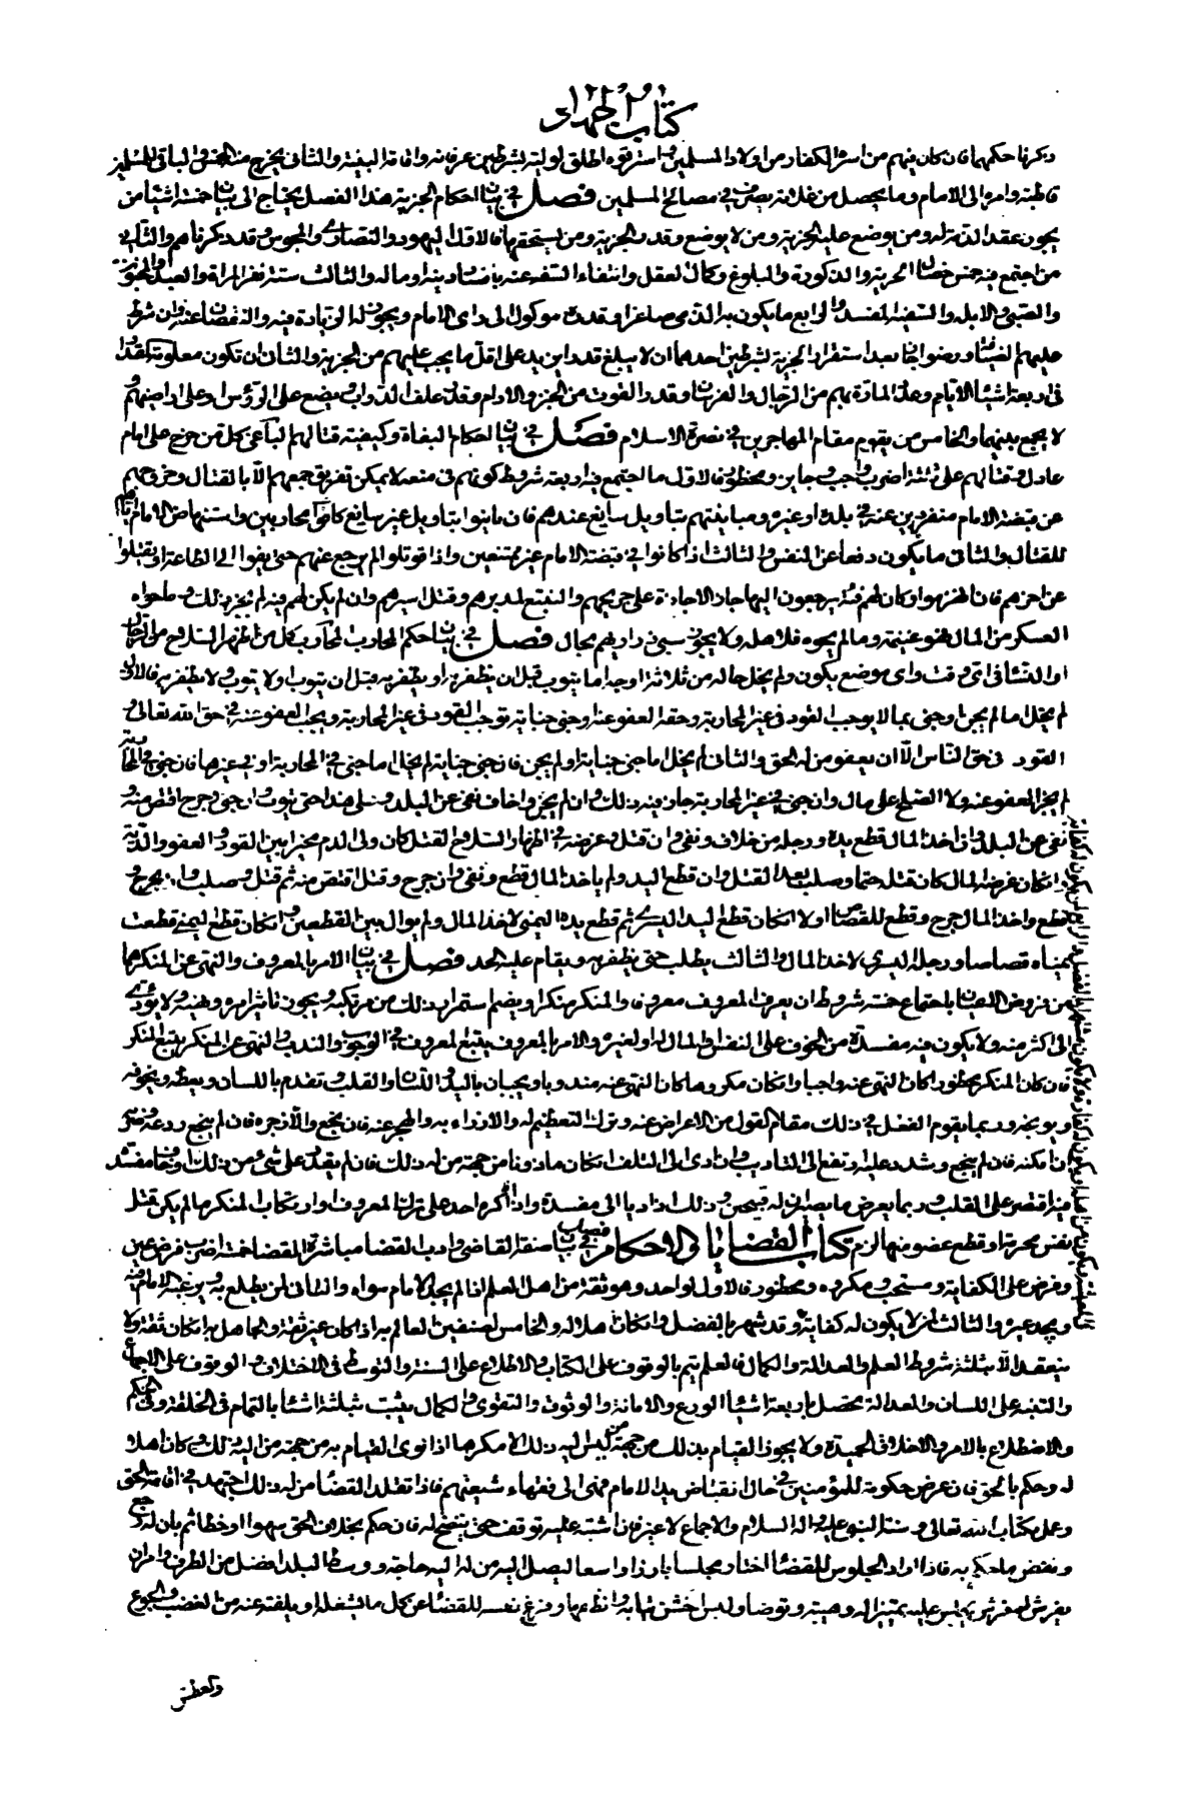 كتاب الجهاد
ذكرنا حكمهما فان كان فيهم من اسرا الكفار من اولاد المسلمين واسترقوه اطلق لوليه بشرطين عرفانه واقامة البينة والثانى يخرج منه الخمس والباقى للمسلمين
قاطبة وامره الى الامام وما يحصل من غلاته يصرف في مصالح المسلمين فصل في بيان احكام الجزية هذا الفصل يحتاج الى بيان خمسة اشياء من
يجوز عقد الذمة له ومن يوضع عليه الجزية ومن لا يوضع وقدر الجزية ومن يستحقها فالاول اليهود والنصارى والمجوس وقد ذكرناهم والثانى
من اجتمع فيه خمس خصال الحرية والذكورة والبلوغ وكمال العقل وانتفاء السفه عنه بافساد دينه وماله والثالث ستة نفر المراة والعبد والمجنون
والصبي والابله والسفيه المفسد والرابع ما يكون به الذمى صاغرا وقدره موكول الى راى الامام ويجوز له الزيادة فيه والنقصان عنه وان شرط
عليهم الضيافة ورضوا بها بعد استقرار الجزية بشرطين احدهما ان لا يبلغ قدرا يزيد على اقل ما يجب عليهم من الجزية والثانى ان تكون معلومة المقدار
فى اربعة اشياء الايام وعدد المارة بهم من الرجال والفرسان وقدر القوت من الخبز والادام وقدر علف الدواب ويضع على الرؤس او على اراضيهم و
لا يجمع بينهما والخامس من يقوم مقام المهاجرين في نصرة الاسلام فصل في بيان احكام البغاة وكيفية قتالهم الباغى كل من خرج على امام
عادل وقتالهم على ثلثة اضرب واجب وجايز ومحظور فالاول ما اجتمع فيه اربعة شروط كونهم فى منعة لا يمكن تفريق جمعهم الا بالقتال وخروجهم
عن قبضة الامام منفردين عنه في بلد او غيره ومباينتهم بتاويل سايغ عندهم فان باينوا بتاويل غير سايغ كانوا محاربين واستنهاض الامام اياهم
للقتال والثانى ما يكون دفعا عن النفس والثالث اذا كانوا في قبضة الامام غير ممتنعين واذا قوتلوا لم يرجع عنهم حتى يفيوا الى الطاعة او يقتلوا
عن اخرهم فان انهزموا وكان لهم فئة يرجعون اليها جاز الاجازة على جريحهم والتتبع لمدبرهم وقتل اسيرهم وان لم يكن لهم فئة لم يجز ذلك وما حواه
العسكر من المال فهو غنيمة وما لم يحوه فلاهله ولا يجوز سبي ذراريهم بحال فصل في بيان حكم المحارب المحارب كل من اظهر السلاح من الرجال
او النساء فى اى وقت واى موضع يكون ولم يخل حاله من ثلاثة اوجه اما يتوب قبل ان يظفر به او يظفر به قبل ان يتوب او لا يتوب ولا يظفر به فالاول
لم يخل ما لم يجن او جنى بما لا يوجب القود فى غير المحاربة وحقه العفو عنه او جنى جناية توجب القود فى غير المحاربة ويجب العفو عنه في حق الله تعالى و
القود فى حق الناس الا ان يعفو من له الحق والثانى لم يخل ما جنى جناية او لم يجن فان جنى جناية لم يخل اما جنى في المحاربة او في غيرها فان جنى في المحاربة
لم يجز العفو عنه ولا الصلح على مال وان جنى في غير المحاربة جاز فيه ذلك وان لم يجن واخاف نفى عن البلد وعلى هذا حتى يتوب وان جنى وجرح اقتص منه و
نفى عن البلد وان اخذ المال قطع يده ورجله من خلاف ونفى وان قتل وغرضه في اظهار السلاح القتل كان ولى الدم مخيرا بين القود والعفو والدية
وان كان غرضه المال كان قتله حتما وصلب بعد القتل وان قطع اليد ولم ياخذ المال قطع ونفى وان جرح وقتل اقتص منه ثم قتل وصلب وان جرح و
قطع واخذ المال جرح وقطع للقصاص اولا ان كان قطع اليد اليسرى ثم قطع يده اليمنى لاخذ المال ولم يوال بين القطعين وان كان قطع اليمنى قطعت
يمناه قصاصا ورجله اليسرى لاخذ المال والثالث يطلب حتى يظفر به ويقام عليه الحد فصل في بيان الامر بالمعروف والنهى عن المنكر هما
من فروض الاعيان باجتماع خمسة شروط ان يعرف المعروف معروفا والمنكر منكرا ويعلم استمرار ذلك من مرتكبه ويجوز تاثير امره ونهيه ولا يؤدى
الى اكثر منه ولا يكون فيه مفسدة من الخوف على النفس والمال له او لغيره والامر بالمعروف يتبع المعروف في الوجوب والندب والنهى عن المنكر يتبع المنكر
فان كان المنكر محظورا كان النهى عنه واجبا وان كان مكروها كان النهى عنه مندوبا ويجبان باليد واللسان والقلب وتقدم باللسان ويعظه ويخوفه
ويوبخه وربما يقوم الفعل في ذلك مقام القول من الاعراض عنه وترك التعظيم له والازراء به والهجر عنه فان نجع والا زجره فان لم ينجع ردعه
ان امكنه فان لم ينجع وشدد عليه وتفع الى التاديب وان ادى الى التلف ان كان ماذونا من جهة من له ذلك فان لم يقدر على شئ من ذلك او خاف مفسدة
فيه اقتصر على القلب وربما يعرض ما يصيران له قبيحين وذلك اذا ديا الى مفسدة واذا اكره احد على ترك المعروف او ارتكاب المنكر ما لم يكن قتل
نفس محرمة او قطع عضو منها لزم كتاب القضايا والاحكام فصل في بيان صفة القاضى وادب القضا مباشرة القضا خمسة اضرب فرض عين
وفرض على الكفاية ومستحب ومكروه ومحظور فالاول لواحد وموثقة من اهل العلم اذا لم يجد الامام سواه والثانى لمن يطلع به ويرغبه الامام فيه
ويجد غيره والثالث لمن لا يكون له كفاية وقد شهر بالفضل وان كان اهلا له والخامس لصنفين العالم به اذا كان غير ثقة والجاهل به ان كان ثقة ولا
ينعقد الا بثلثة شروط العلم والعدالة والكمال فالعلم يتم بالوقوف على الكتاب والاطلاع على السنة والتوسط فى الاختلاف والوقوف على الاجماع
والتنبه على اللسان والعدالة تحصل باربعة اشياء الورع والامانة والوثوق والتقوى والكمال يثبت بثلثة اشياء بالتمام فى الخلقة وفى الحكم
والاضطلاع بالامر والاخلاق الحميدة ولا يجوز القيام بذلك من جهة من ليس اليه ذلك الا مكرها اذا نوى القيام به من جهة من اليه ذلك وكان اهلا
له وحكم بالحق فان عرض حكومة للمؤمنين في حال انقباض يد الامام فهى الى فقهاء شيعتهم فاذا تقلد القضاء من له ذلك اجتهد في اقامة الحق
وعمل بكتاب الله تعالى وسنة النبي عليه واله السلام والاجماع لا غير فان اشتبه عليه توقف حتى يتضح له فان حكم بخلاف الحق سهوا او خطا ثم بان له رجع
ونقض ما حكم به فاذا اراد الجلوس للقضاء اختار مجلسا بارزا واسعا ليصل اليه من له اليه حاجة ووسط البلد افضل من الطرف وامر ان
يفرش له مفرش يجلس عليه بمنزله وهيبته وتوضا ولبس اخشن ثيابه وانظفها وفرغ نفسه للقضاء عن كل ما يشغله او يلفته عنه من الغضب والجوع
والعطش